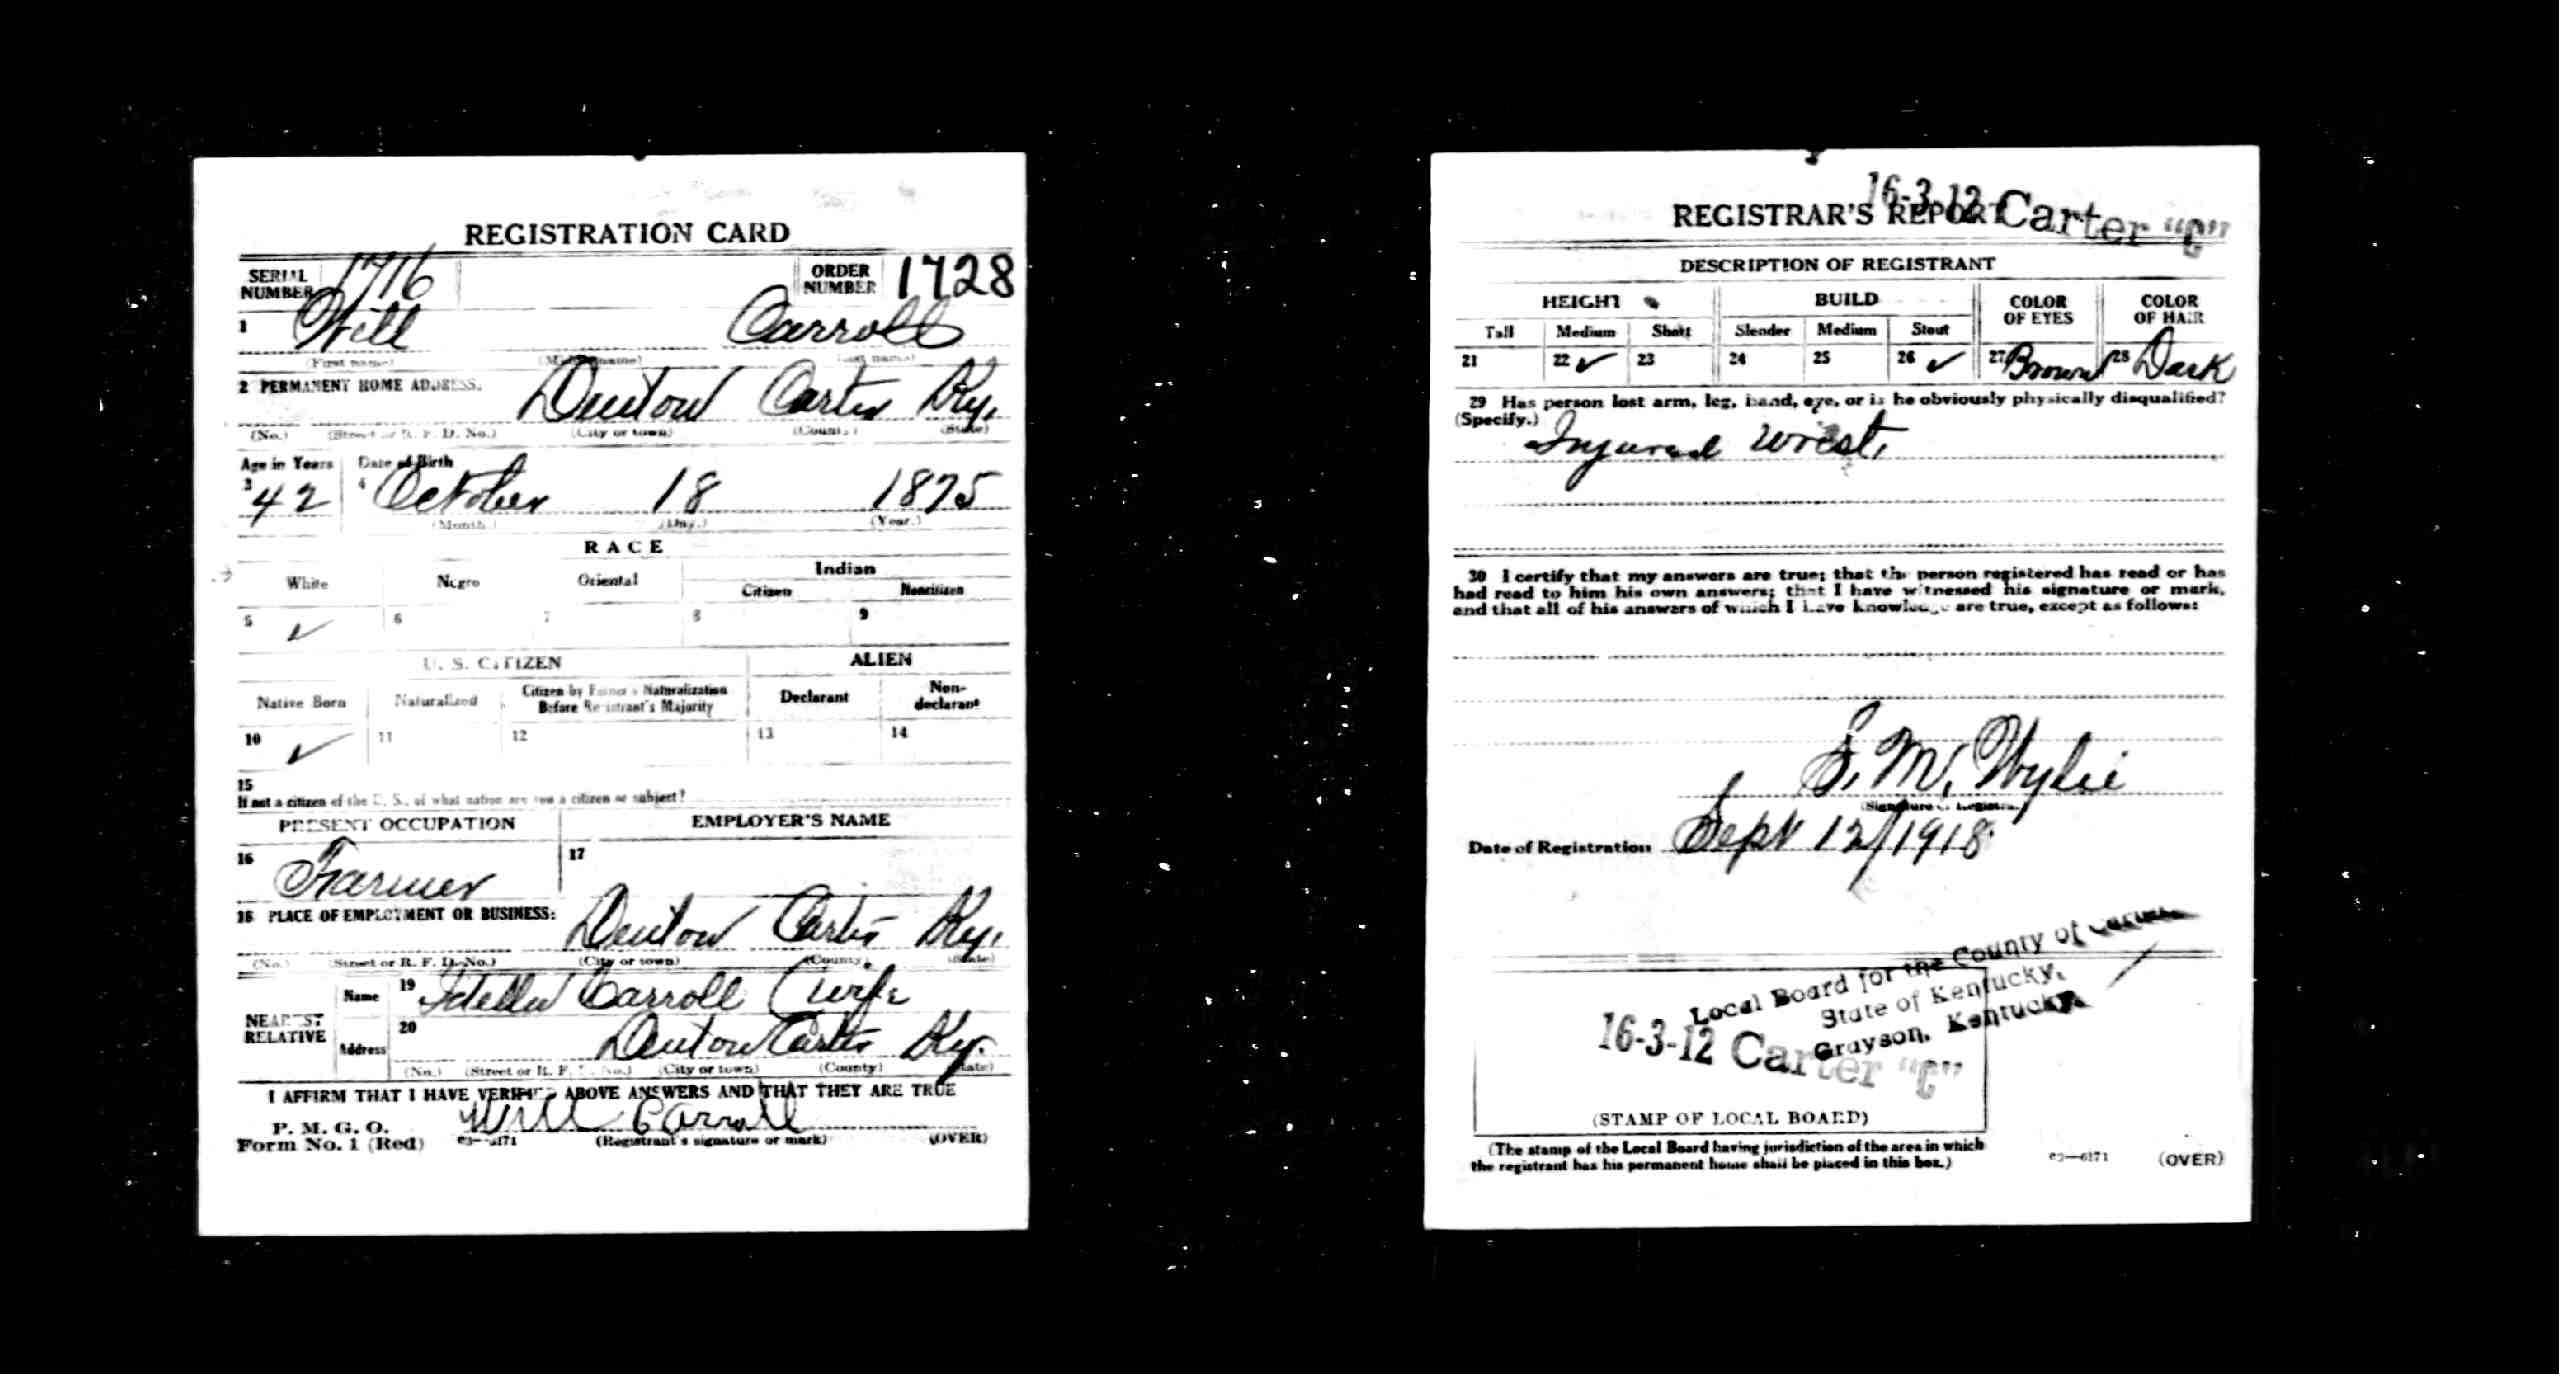 REGISTRATION CARD
SERIAL NUMBER 1716 ORDER NUMBER 1728
1 Will Carroll
(First name) (Middle name) (Last name)
2 PERMANENT HOME ADDRESS:
Denton Carter Ky.
(No.) (Street or R. F. D. No.) (City or town) (County) (State)
Age in Years Date of Birth
3 42 4 October 18 1875
(Month.) (Day.) (Year.)
RACE
White Negro Oriental Indian
Citizen Noncitizen
5 ✓ 6 7 8 9
U. S. CITIZEN ALIEN
Native Born Naturalized Citizen by Father's Naturalization Before Registrant's Majority Declarant Non-declarant
10 ✓ 11 12 13 14
15
If not a citizen of the U. S., of what nation are you a citizen or subject?
PRESENT OCCUPATION EMPLOYER'S NAME
16 Farmer 17
18 PLACE OF EMPLOYMENT OR BUSINESS:
Denton Carter Ky.
(No.) (Street or R. F. D. No.) (City or town) (County) (State)
NEAREST RELATIVE
Name 19 Carroll (wife
Address 20 Denton Carter Ky.
(No.) (Street or R. F. D. No.) (City or town) (County) (State)
I AFFIRM THAT I HAVE VERIFIED ABOVE ANSWERS AND THAT THEY ARE TRUE
P. M. G. O.
Form No. 1 (Red) 03—6171 Will Carroll
(Registrant's signature or mark) (OVER)
16-3-12 Carter "C"
REGISTRAR'S REPORT
DESCRIPTION OF REGISTRANT
HEIGHT BUILD COLOR OF EYES COLOR OF HAIR
Tall Medium Short Slender Medium Stout
21 22 ✓ 23 24 25 26 ✓ 27 Brown 28 Dark
29 Has person lost arm, leg, hand, eye, or is he obviously physically disqualified?
(Specify.) Injured wrist.
30 I certify that my answers are true; that the person registered has read or has
had read to him his own answers; that I have witnessed his signature or mark,
and that all of his answers of which I have knowledge are true, except as follows:
M. Wylie
(Signature of Registrar)
Date of Registration Sept 12/1918
Local Board for the County of
State of Kentucky,
Grayson, Kentucky.
16-3-12 Carter "C"
(STAMP OF LOCAL BOARD)
(The stamp of the Local Board having jurisdiction of the area in which
the registrant has his permanent home shall be placed in this box.)
03—6171 (OVER)